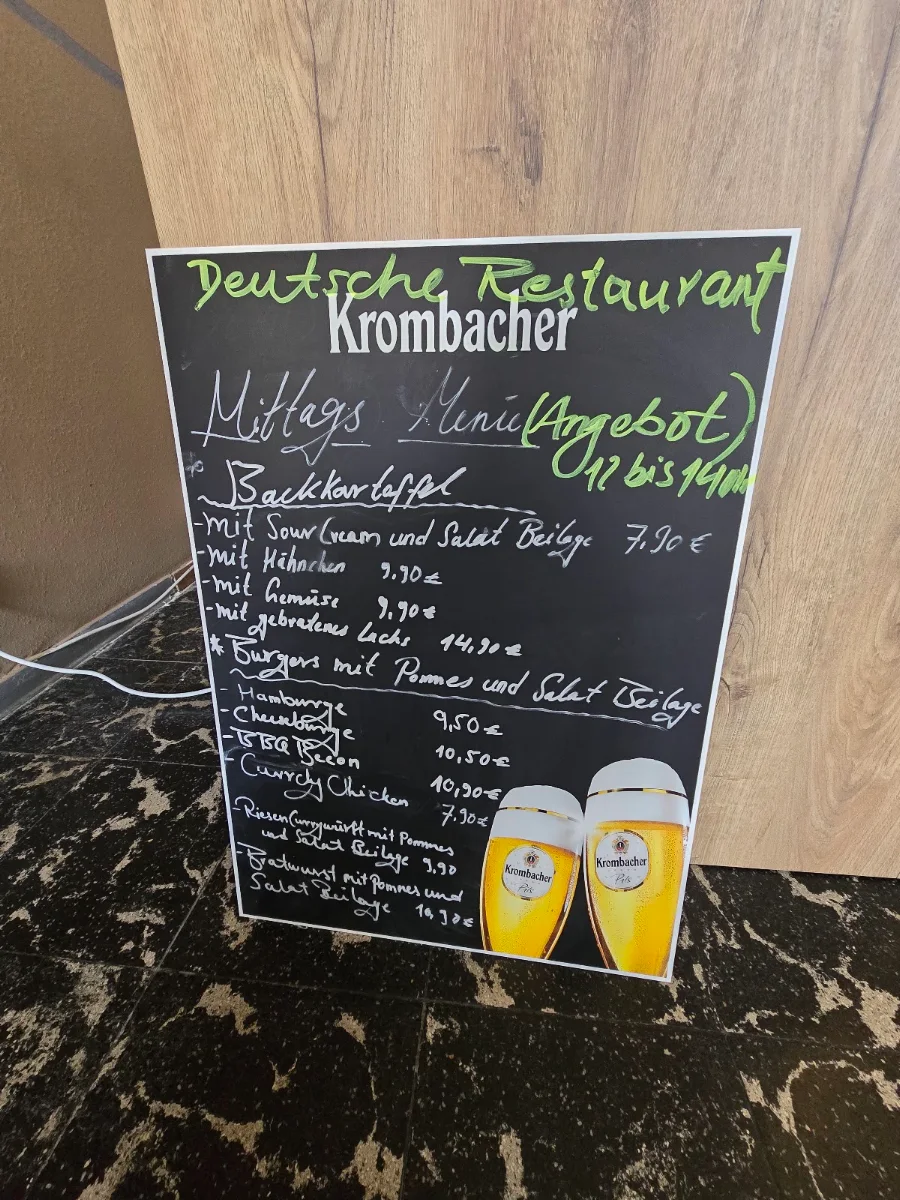 Deutsche Restaurant
Krombacher
Mittags Menü (Angebot)
12 bis 14 Uhr
Backkartoffel
- mit Sour Cream und Salat Beilage 7.90 €
- mit Hähnchen 9.90 €
- mit Gemüse 9.90 €
- mit gebratenes Lachs 14,90 €
* Burgers mit Pommes und Salat Beilage
- Hamburge 9,50 €
- Cheeseburge 10,50 €
- BBQ Becon 10,90 €
- Currdy Chicken 7.90 €
- Riesen Currywurst mit Pommes
und Salat Beilage 9,90
- Bratwurst mit Pommes und
Salat Beilage 10,90 €
Krombacher
Pils
Krombacher
Pils